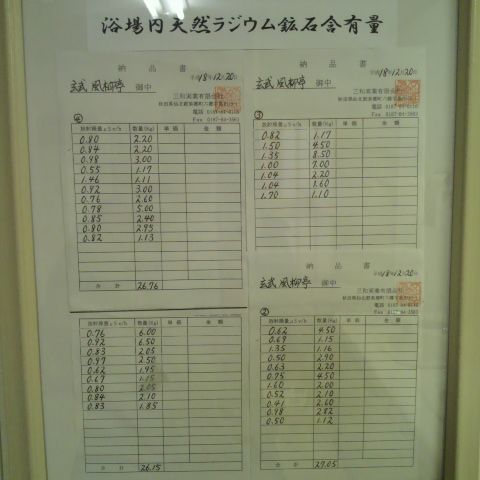 浴場内天然ラジウム鉱石含有量
納品書
平成18年12月20日
玄武 風柳亭 御中
三和実業有限会社
放射線量μSv/h 数量(Kg) 単価 金額
0.80 2.20
0.84 2.20
0.98 3.00
0.55 1.17
1.46 1.11
0.92 3.00
0.76 2.60
0.78 5.00
0.85 2.40
0.80 2.95
0.82 1.13
合計 26.76
放射線量μSv/h 数量(Kg) 単価 金額
0.76 6.00
0.92 6.50
0.83 2.05
0.97 2.50
0.62 1.95
0.67 1.15
0.80 2.05
0.84 2.10
0.83 1.85
合計 26.15
納品書
平成18年12月20日
玄武 風柳亭 御中
三和実業有限会社
③
放射線量μSv/h 数量(Kg) 単価 金額
0.82 1.17
1.50 4.50
1.35 8.50
1.00 7.00
1.04 2.20
1.04 1.60
1.70 1.10
納品書
平成18年12月20日
玄武 風柳亭 御中
三和実業有限会社
②
放射線量μSv/h 数量(Kg) 単価 金額
0.62 4.50
0.69 1.15
1.35 1.16
0.50 2.90
0.63 2.20
0.75 4.50
1.60 2.00
0.52 2.10
0.41 2.60
0.98 2.82
0.50 1.12
合計 27.05